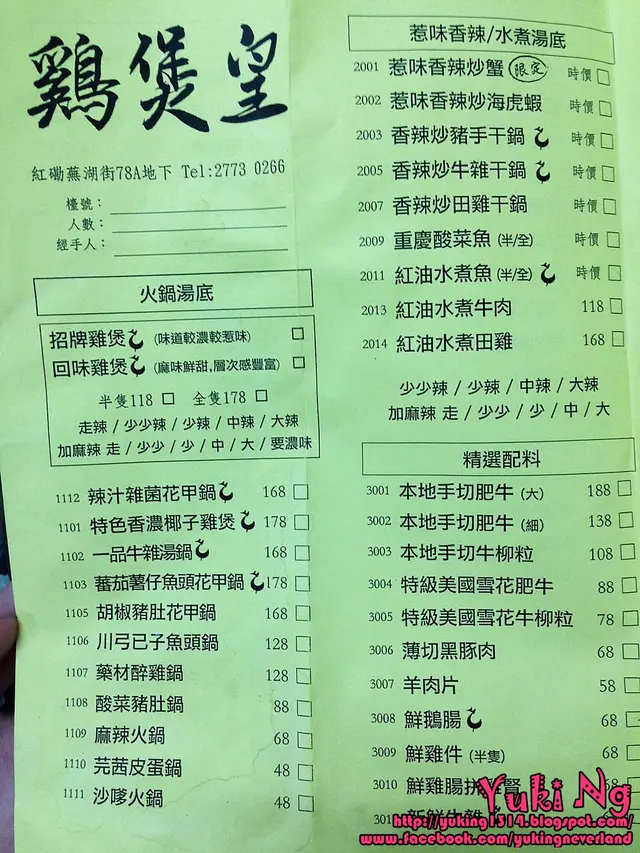 鷄煲皇
紅磡蕪湖街78A地下 Tel:2773 0266
檯號：
人數：
經手人：
火鍋湯底
招牌雞煲 (味道較濃較惹味)
回味雞煲 (麻味鮮甜,層次感豐富)
半隻118 □ 全隻178 □
走辣 / 少少辣 / 少辣 / 中辣 / 大辣
加麻辣 走 / 少少 / 少 / 中 / 大 / 要濃味
1112 辣汁雜菌花甲鍋 168
1101 特色香濃椰子雞煲 178
1102 一品牛雜湯鍋 168
1103 蕃茄薯仔魚頭花甲鍋 178
1105 胡椒豬肚花甲鍋 168
1106 川弓已子魚頭鍋 128
1107 藥材醉雞鍋 128
1108 酸菜豬肚鍋 88
1109 麻辣火鍋 68
1110 芫茜皮蛋鍋 48
1111 沙嗲火鍋 48
惹味香辣/水煮湯底
2001 惹味香辣炒蟹 限定 時價
2002 惹味香辣炒海虎蝦 時價
2003 香辣炒豬手干鍋 時價
2005 香辣炒牛雜干鍋 時價
2007 香辣炒田雞干鍋 時價
2009 重慶酸菜魚 (半/全) 時價
2011 紅油水煮魚 (半/全) 時價
2013 紅油水煮牛肉 118
2014 紅油水煮田雞 168
少少辣 / 少辣 / 中辣 / 大辣
加麻辣 走 / 少少 / 少 / 中 / 大
精選配料
3001 本地手切肥牛 (大) 188
3002 本地手切肥牛 (細) 138
3003 本地手切牛柳粒 108
3004 特級美國雪花肥牛 88
3005 特級美國雪花牛柳粒 78
3006 薄切黑豚肉 68
3007 羊肉片 58
3008 鮮鵝腸 68
3009 鮮雞件 (半隻) 68
3010 鮮雞腸拼 腎 68
301 新鮮牛雜
Yuki Ng
http://yuking1314.blogspot.com/
www.facebook.com/yukingneverland